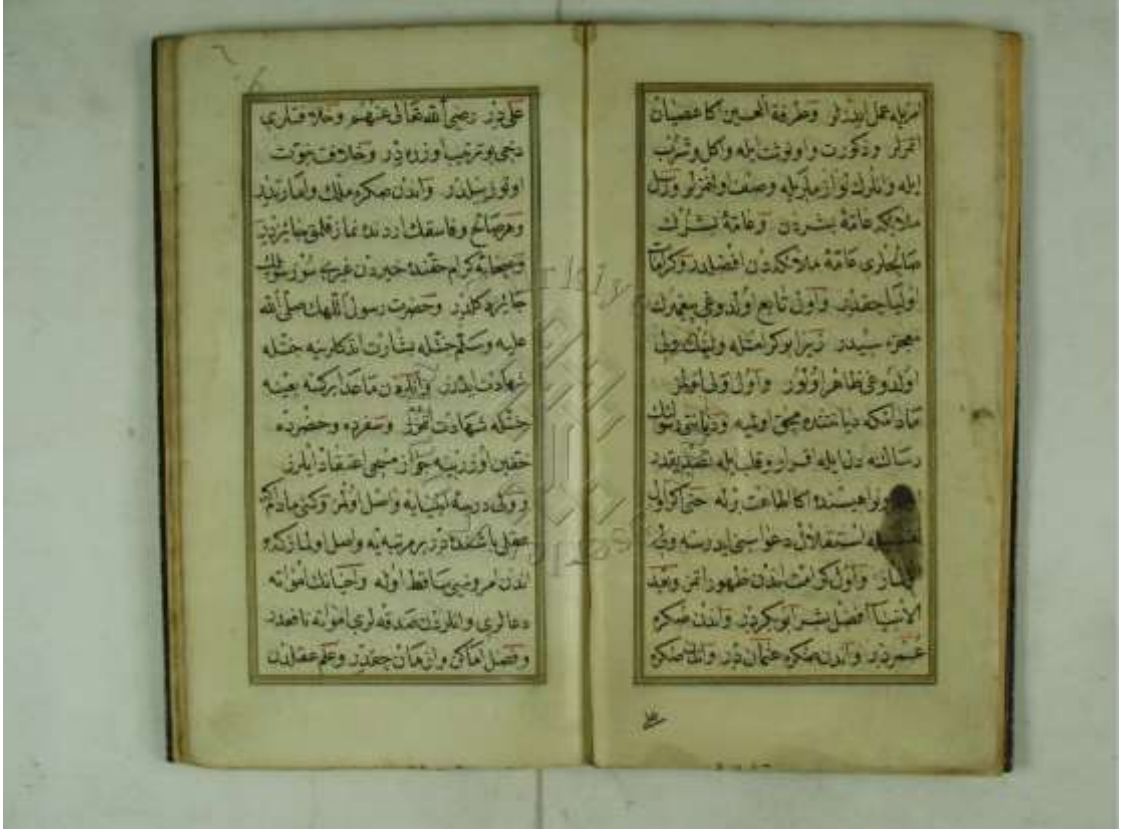 امريله عمل ايدرلر وطرفة العين اكا عصيان
اتمزلر وذكورت وانوثت ايله واكل وشرب
ايله وانلرك لوازملريله وصف اولنمزلر ورسل
ملائكه عامّۀ بشردن وعامّۀ بشرك
صالحلرى عامّۀ ملائكه دن افضلدر وكرامات
اوليا حقدر واول تابع اولدوغى پيغمبرك
معجزه سيدر زيرا بو كرامتله ولينك ولى
اولدوغى ظاهر اولور واول ولى اولمز
مادامكه ديانتنده محق اولميه وديانتى رسولنك
رسالتنه دل ايله اقرار وقلب ايله تصديقدر
ونواهيسنده اكا اطاعت برله حتى اكر اول
استقلال دعواسنى ايدرسه ولى
اولماز واول كرامت اندن ظهور اتمز وبعد
الانبيا افضل بشر ابو بكردر واندن صكره
عمردر واندن صكره عثماندر واندن صكره
علىدر رضى الله تعالى عنهم وخلافتلرى
دخى بو ترتيب اوزره در وخلافت نبوت
اوتوز ييلدر واندن صكره ملك وامارتدر
وهر صالح وفاسقك اردنده نماز قلمق جائزدر
وصحابۀ كرام حقنده خيردن غيرى سوز سويلمك
جايز دكلدر وحضرت رسول اللهك صلى الله
عليه وسلم جنتله بشارت اتدكلرينه جنتله
شهادت ايدرز وانلردن ماعدا بركسه يه بعينه
جنتله شهادت اتمزز وسفرده وحضرده
خفين اوزرينه جواز مسحى اعتقاد ايلرز
وولى درجۀ انبيايه واصل اولمز وكشى مادامكه
عقلى باشنده در بر مرتبه يه واصل اولمازكه
اندن امر ونهى ساقط اوله واحيانك امواته
دعالرى وانلرچون صدقه لرى امواته نافعدر
وفضل اماكن وازمان حقدر وعلم عقلدن